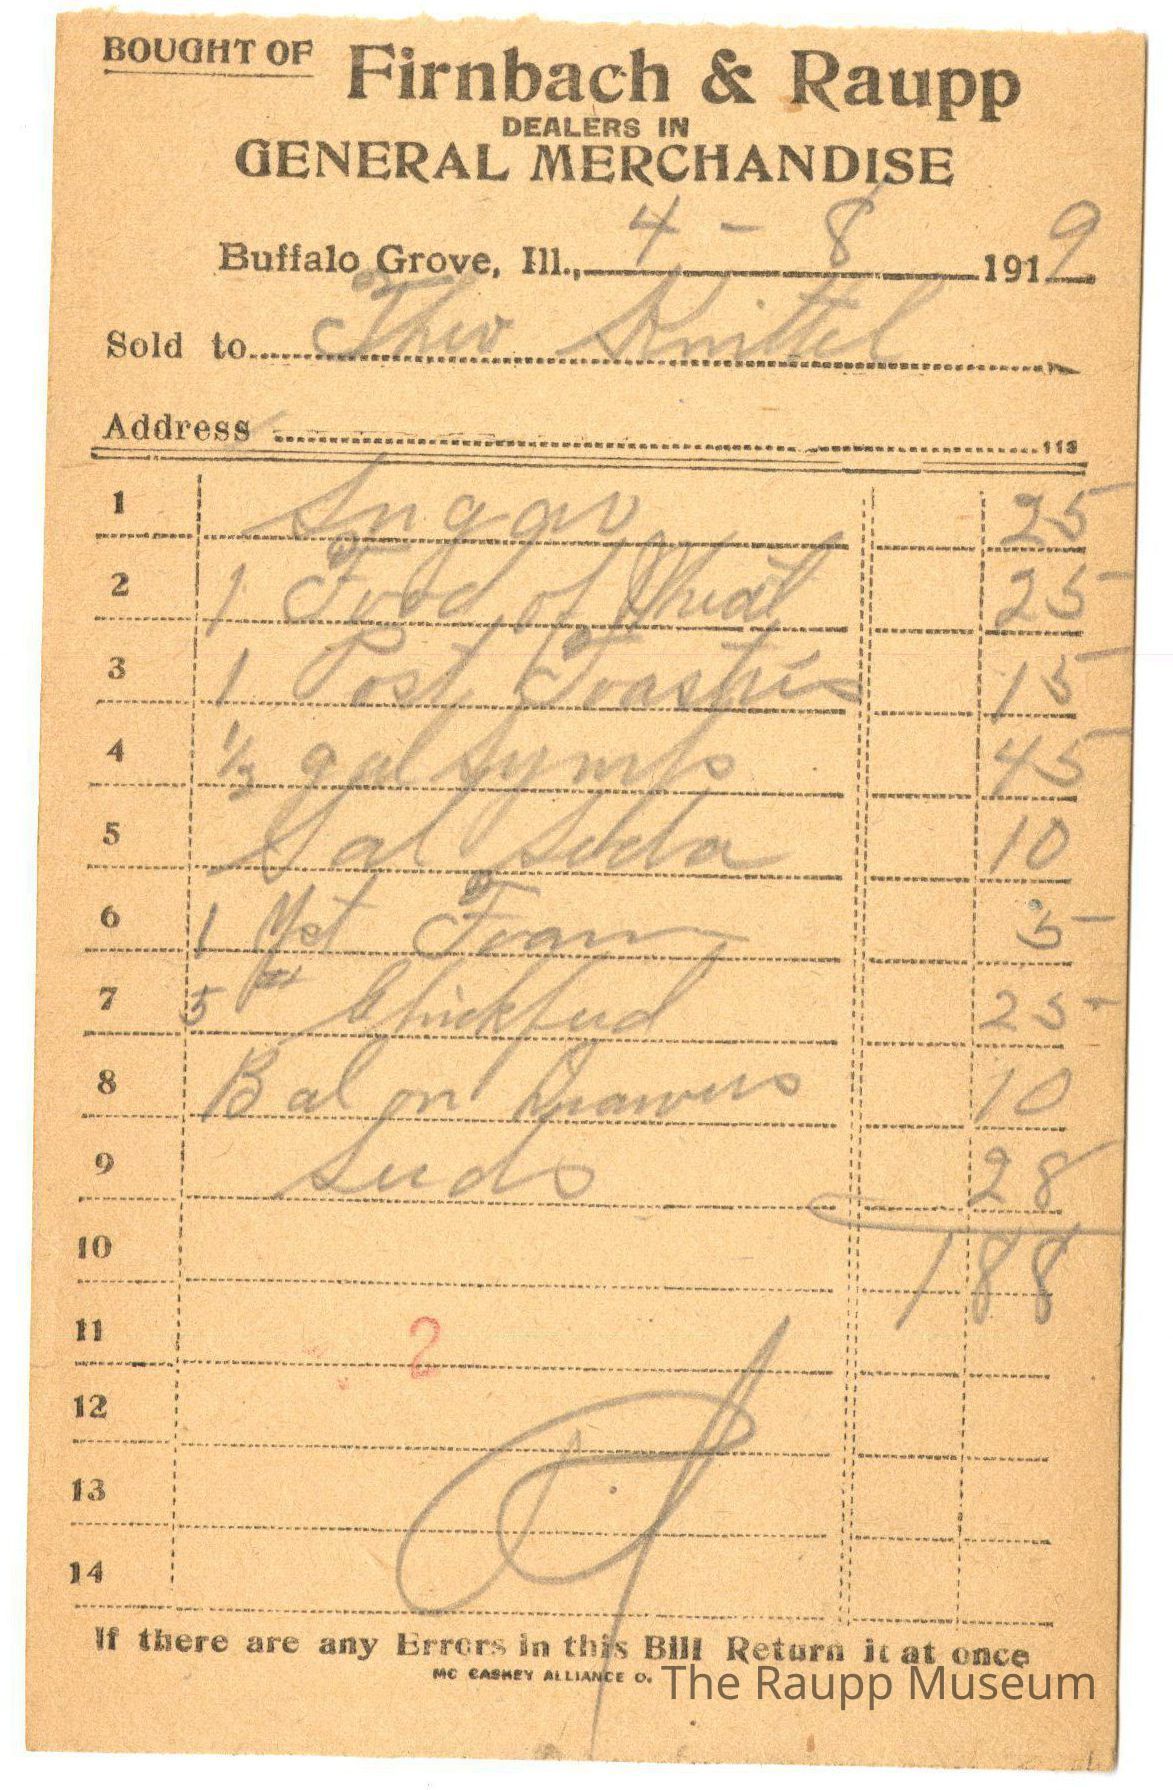 BOUGHT OF Firnbach & Raupp
DEALERS IN
GENERAL MERCHANDISE
Buffalo Grove, Ill., 4 - 8 1919
Sold to Theo Knittel
Address 113
1 Suggar 25
2 1 Food of Wheat 25
3 1 Post Toasties 15
4 1/2 gal Syrups 45
5 Sal Soda 10
6 1 Yst Foam 5
7 5 # Chickfeed 25
8 Bal on Drawers 10
9 Seeds 28
10 188
11 2
12
13
14
If there are any Errors in this Bill Return it at once
MC CASKEY ALLIANCE O.
The Raupp Museum